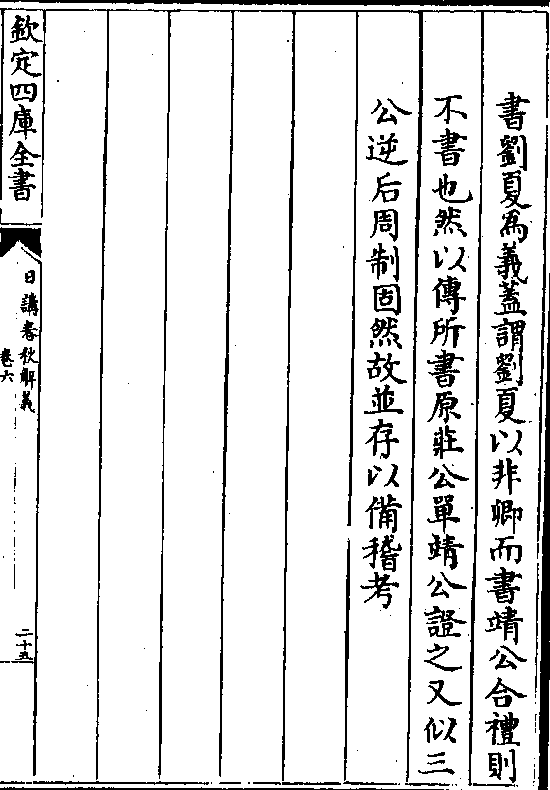 書劉夏為義蓋謂劉夏以非卿而書靖公合禮則
不書也然以傳所書原莊公單靖公證之又似三
公逆后周制固然故並存以備稽考
欽定四庫全書
日講春秋解義
卷六
二十五